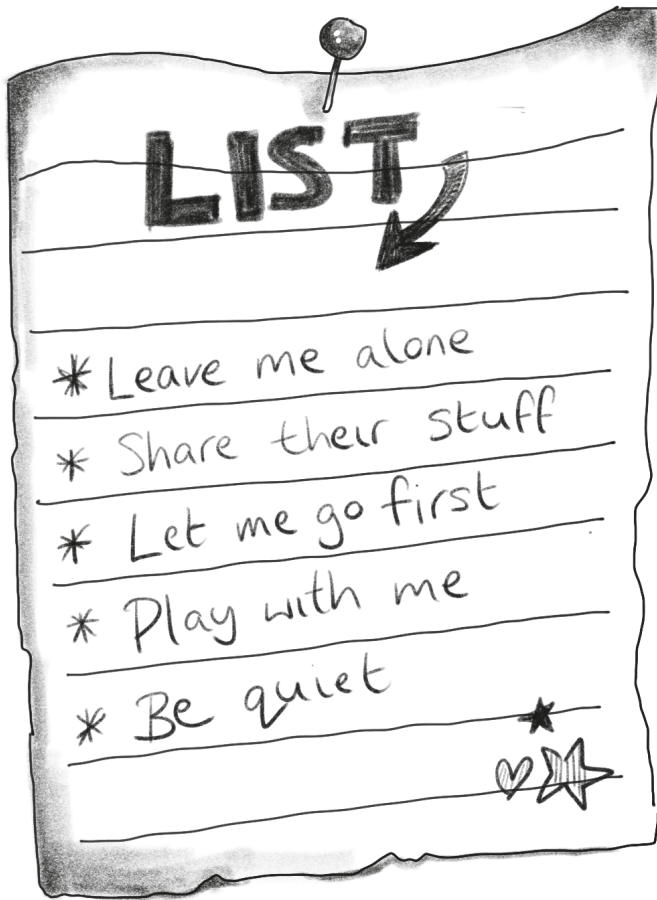 LIST
* Leave me alone
* Share their stuff
* Let me go first
* Play with me
* Be quiet